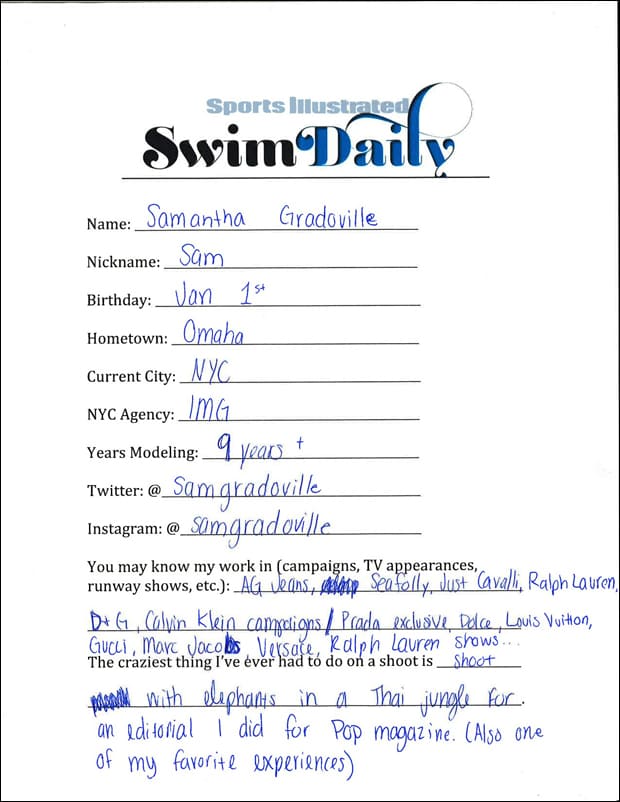 Sports Illustrated
Swim Daily
Name: Samantha Gradoville
Nickname: Sam
Birthday: Jan 1st
Hometown: Omaha
Current City: NYC
NYC Agency: IMG
Years Modeling: 9 years +
Twitter: @ Samgradoville
Instagram: @ samgradoville
You may know my work in (campaigns, TV appearances,
runway shows, etc.): AG Jeans, Seafolly, Just Cavalli, Ralph Lauren,
D+G, Calvin Klein campaigns / Prada exclusive Dolce, Louis Vuitton,
Gucci, Marc Jacobs Versace, Ralph Lauren shows...
The craziest thing I've ever had to do on a shoot is shoot
with elephants in a Thai jungle for
an editorial I did for Pop magazine. (Also one
of my favorite experiences)